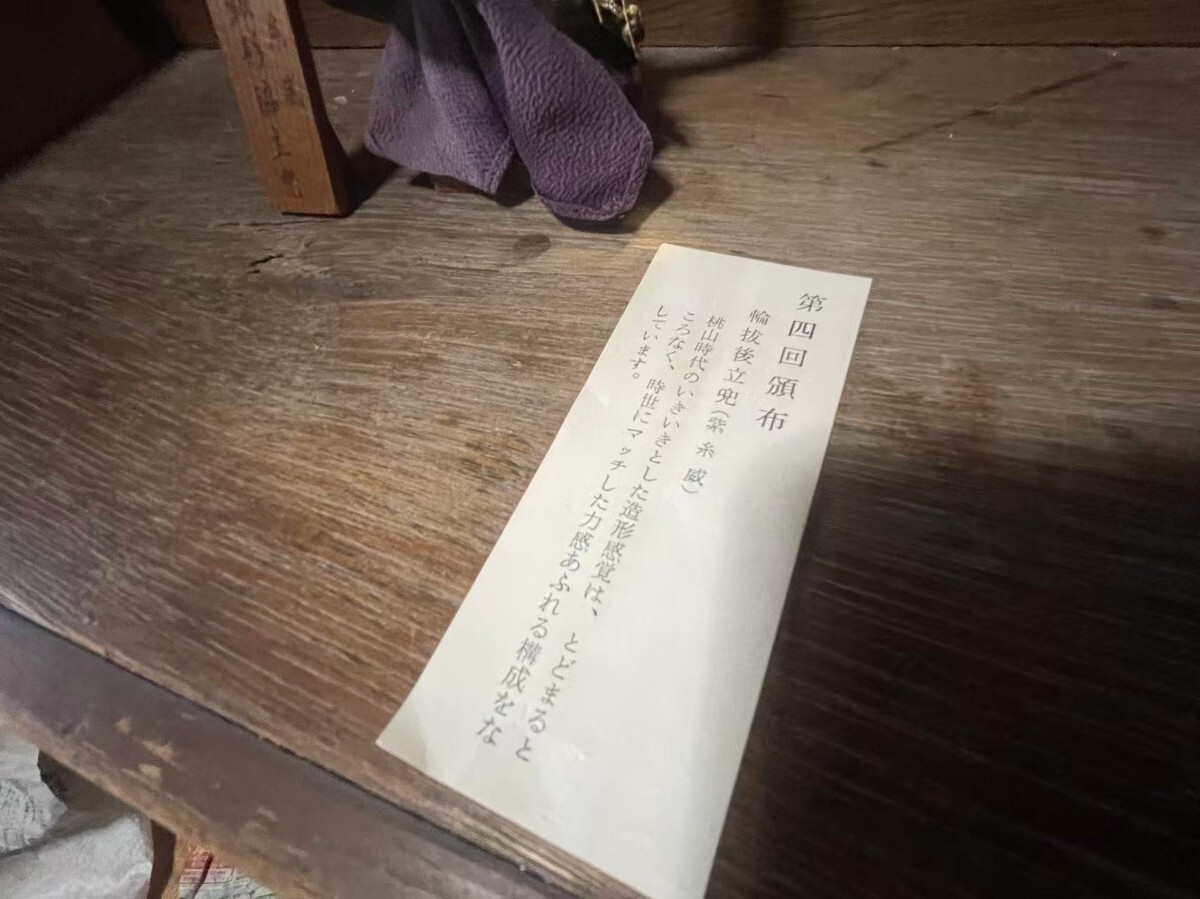 第四回頒布
輪抜後立兜（紫糸威）
桃山時代のいきいきとした造形感覚は、とどまると
ころなく、時世にマッチした力感あふれる構成をな
しています。